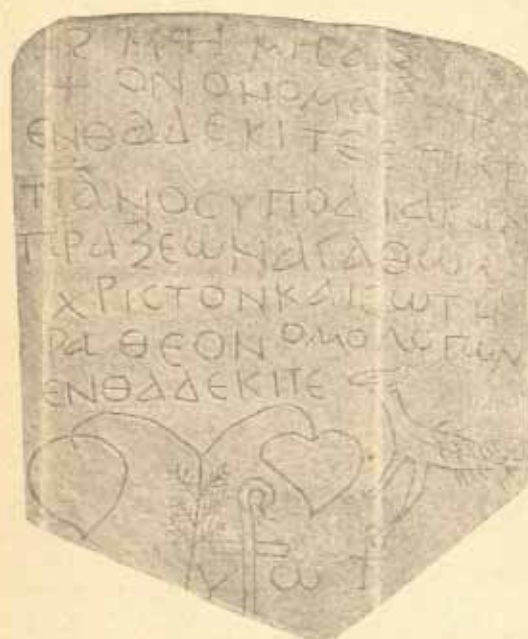 + ΟΝ ΟΝΟΜΑ
ΕΝΘΑΔΕ ΚΙΤΕ
ΤΙΑΝΟϹ ΥΠΟΔΙΑΚΩΝ
ΠΡΑΞΕΩΝ ΑΓΑΘΩΝ
ΧΡΙϹΤΟΝ ΚΑΙ ϹΩΤΗ
ΡΑ ΘΕΟΝ ΟΜΟΛΟΓΩΝ
ΕΝΘΑΔΕ ΚΙΤΕ
Ω